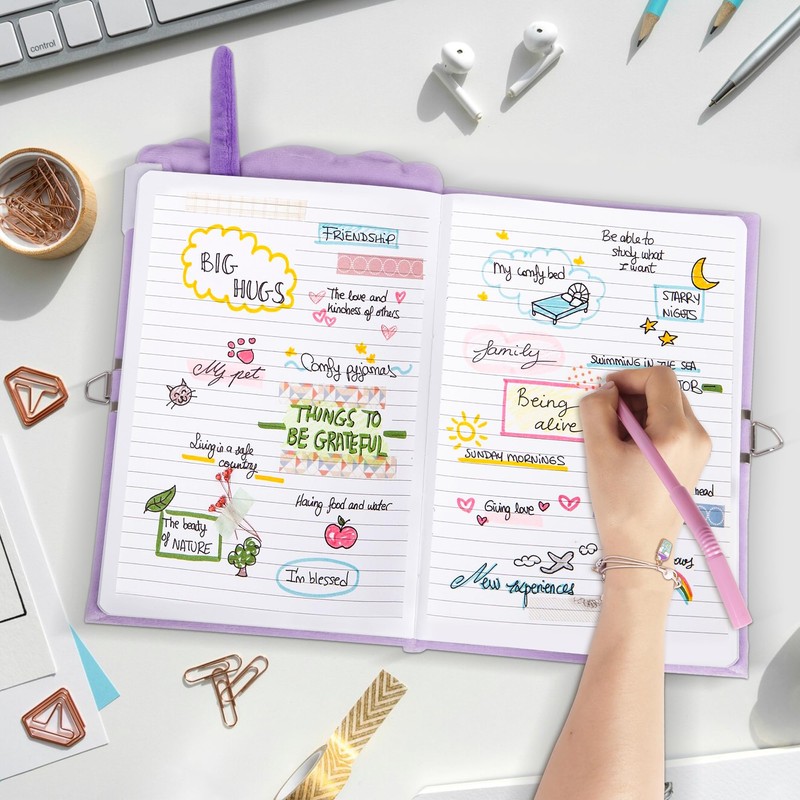 control
FRIENDSHIP
BIG
HUGS
The love and
kindness of others
My pet
Comfy pyjamas
THINGS TO
BE GRATEFUL
Living is a safe
country
Having food and water
The beauty
of NATURE
I'm blessed
Be able to
study what
I want
My comfy bed
STARRY
NIGHTS
family
SWIMMING IN THE SEA
Being
alive
SUNDAY MORNINGS
Giving love
New experiences